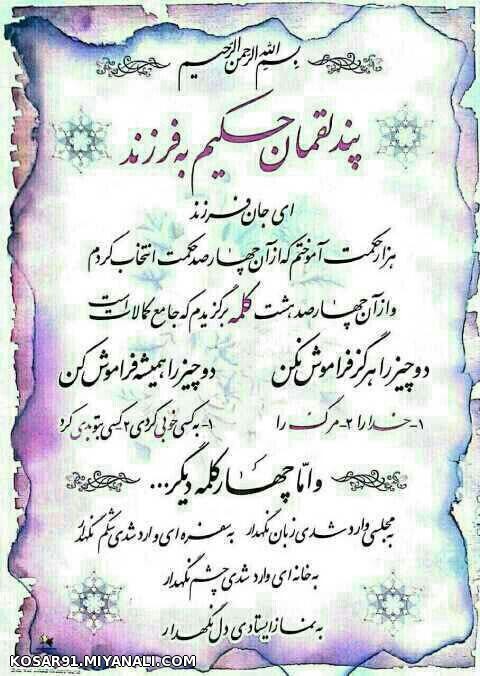 بسم الله الرحمن الرحیم
پند لقمان حکیم به فرزند
ای جان فرزند
هزار حکمت آموختم که از آن چهارصد حکمت انتخاب کردم
و از آن چهارصد هشت کلمه برگزیدم که جامع کمالات است
دو چیز را هرگز فراموش نکن
دو چیز را همیشه فراموش کن
۱- خدا را ۲- مرگ را
۱- به کسی خوبی کردی ۲ کسی بتو بدی کرد
و اما چهار کلمه دیگر...
به مجلسی وارد شدی زبان نگهدار به سفره ای وارد شدی شکم نگهدار
به خانه ای وارد شدی چشم نگهدار
به نماز ایستادی دل نگهدار
KOSAR91.MIYANALI.COM